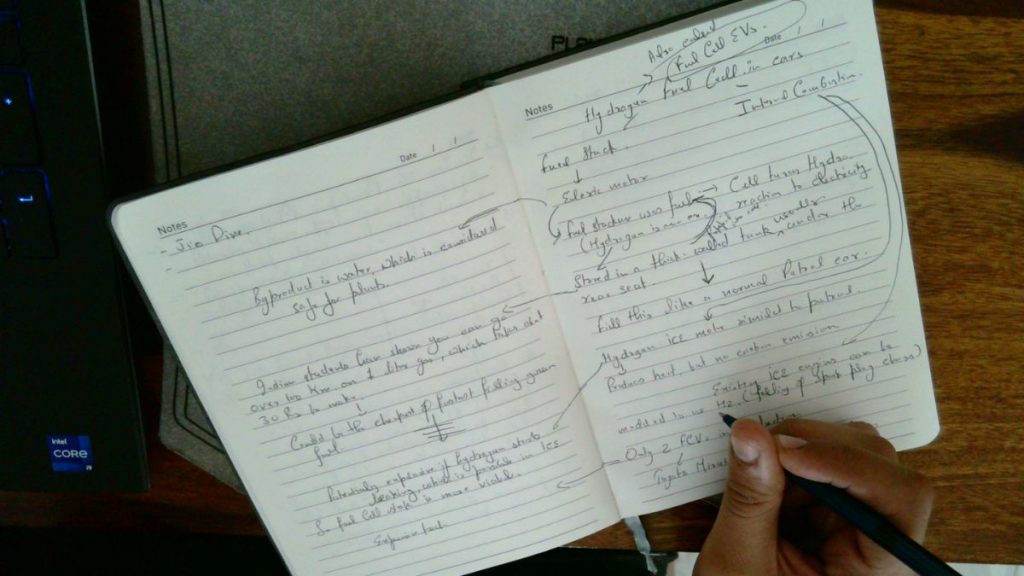 PLA
Notes
Date / /
- Jio Dive.
-
Byproduct is water, which is considered
safe for plants.
Indian students have shown you can go
over 100 Km on 1 litre gas, which take about
30 Rs to make.
Could be the cheapest & fastest fueling green
fuel.
Potentially expensive if hydrogen starts
leaking which is possible in ICE
So fuel cell is more viable.
Expensive tech
Notes
Date / /
Also called
Fuel Cell EVs.
Hydrogen Fuel Cell in cars
Internal Combustion
Fuel Stack.
Elecric motor
Fuel stack uses fuel → Cell turns Hydro
(Hydrogen is reaction to electricity
Stored in a thick walled tank usually under the
rear seat.
Fill this like a normal Patrol car.
Hydrogen ICE similar to patrol.
Produces heat but no carbon emission
Existing ICE engine can be
modded to use H2. ( & Spark plug
Only 2 FCVs in
Toyota Mirai
intel
CORE
i9